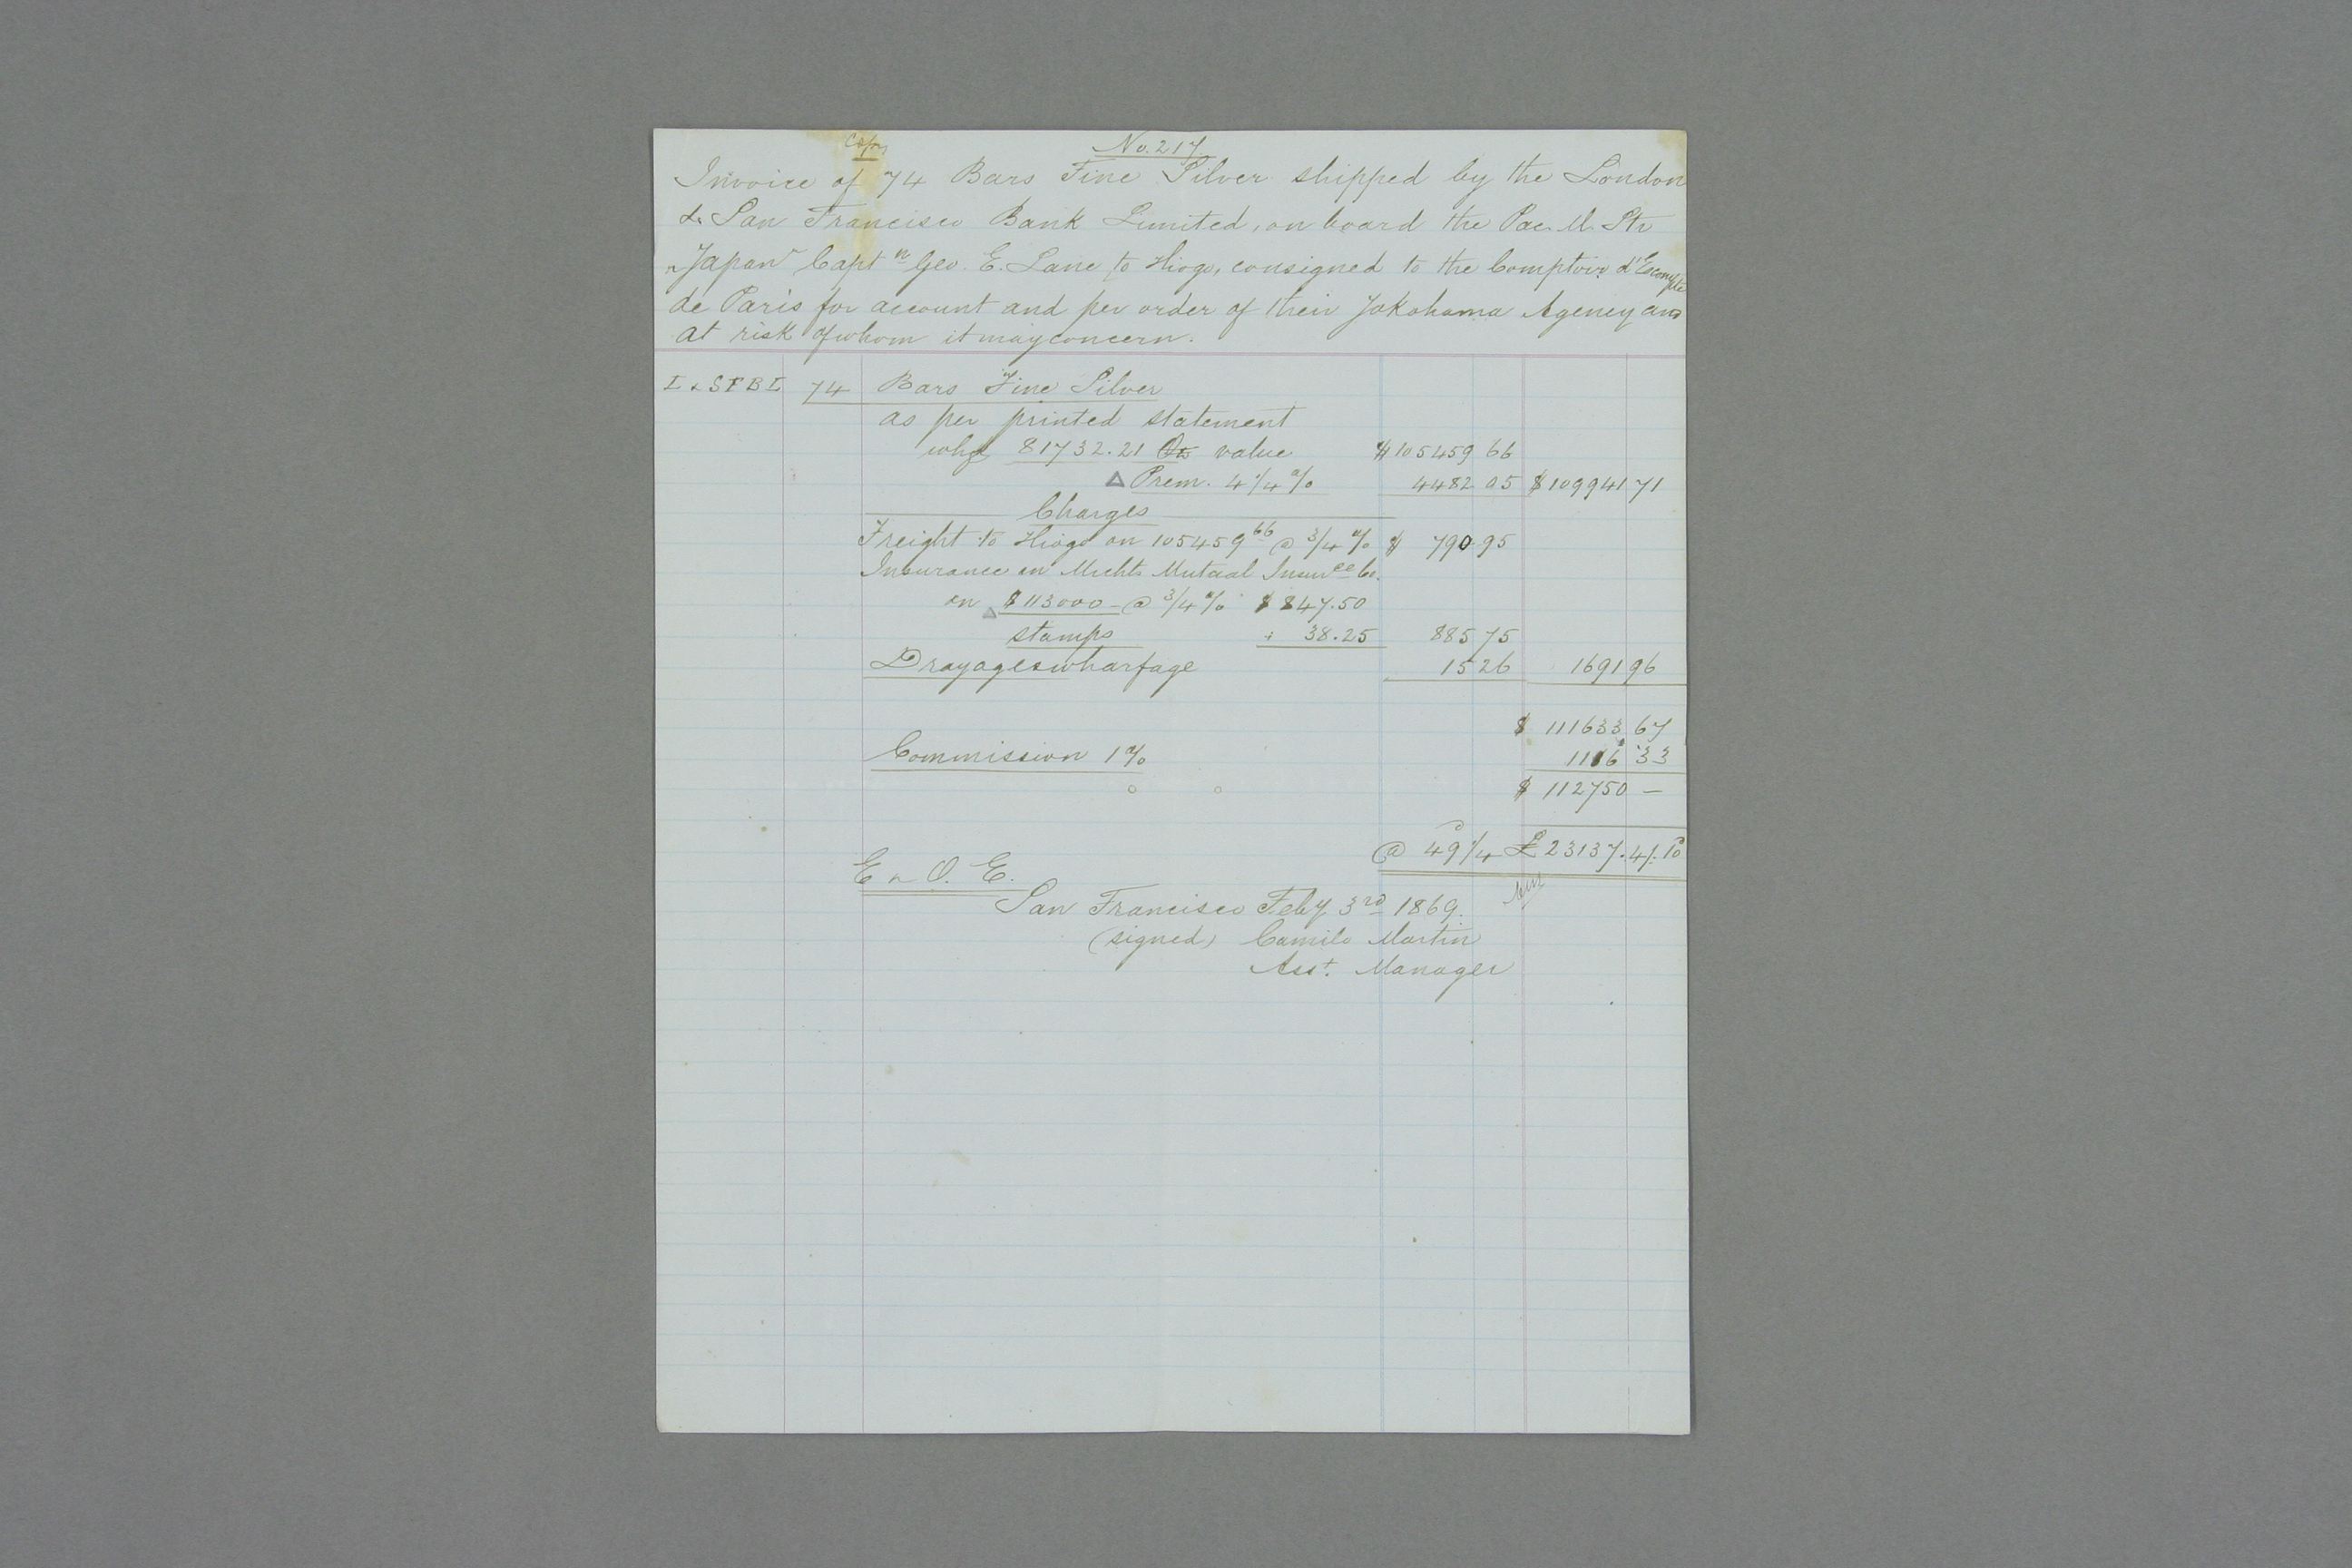 Copy
No. 217
Invoice of 74 Bars Fine Silver shipped by the London
& San Francisco Bank Limited, on board the Pac. M. Str
"Japan" Captn Geo. E. Lane to Hiogo, consigned to the Comptoir d'Escompte
de Paris for account and per order of their Yokohama Agency and
at risk of whom it may concern.
L & SFBL 74 Bars Fine Silver
as per printed statement
whg 81732.21 Oz value $105459 66
Prem. 4 1/4 % 4482 05 $109941 71
Charges
Freight to Hiogo on 105459 66 @ 3/4 % $ 790.95
Insurance in Mchts Mutual Insurce Co.
on $113000 - @ 3/4 % $847.50
stamps " 38.25 885 75
Drayage & wharfage 15 26 1691 96
$ 111633 67
Commission 1 % 1116 33
$ 112750 —
@ 49 1/4 £ 23137.4/.10
E & O. E.
San Francisco Feby 3rd 1869.
(signed) Camilo Martin
Asst. Manager